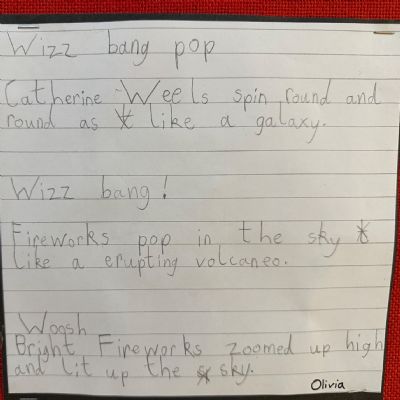 Wizz bang pop
Catherine Weels spin round and
round as like a galaxy.
Wizz bang!
Fireworks pop in the sky
like a erupting volcaneo.
Woosh
Bright Fireworks zoomed up high
and lit up the sky.
Olivia